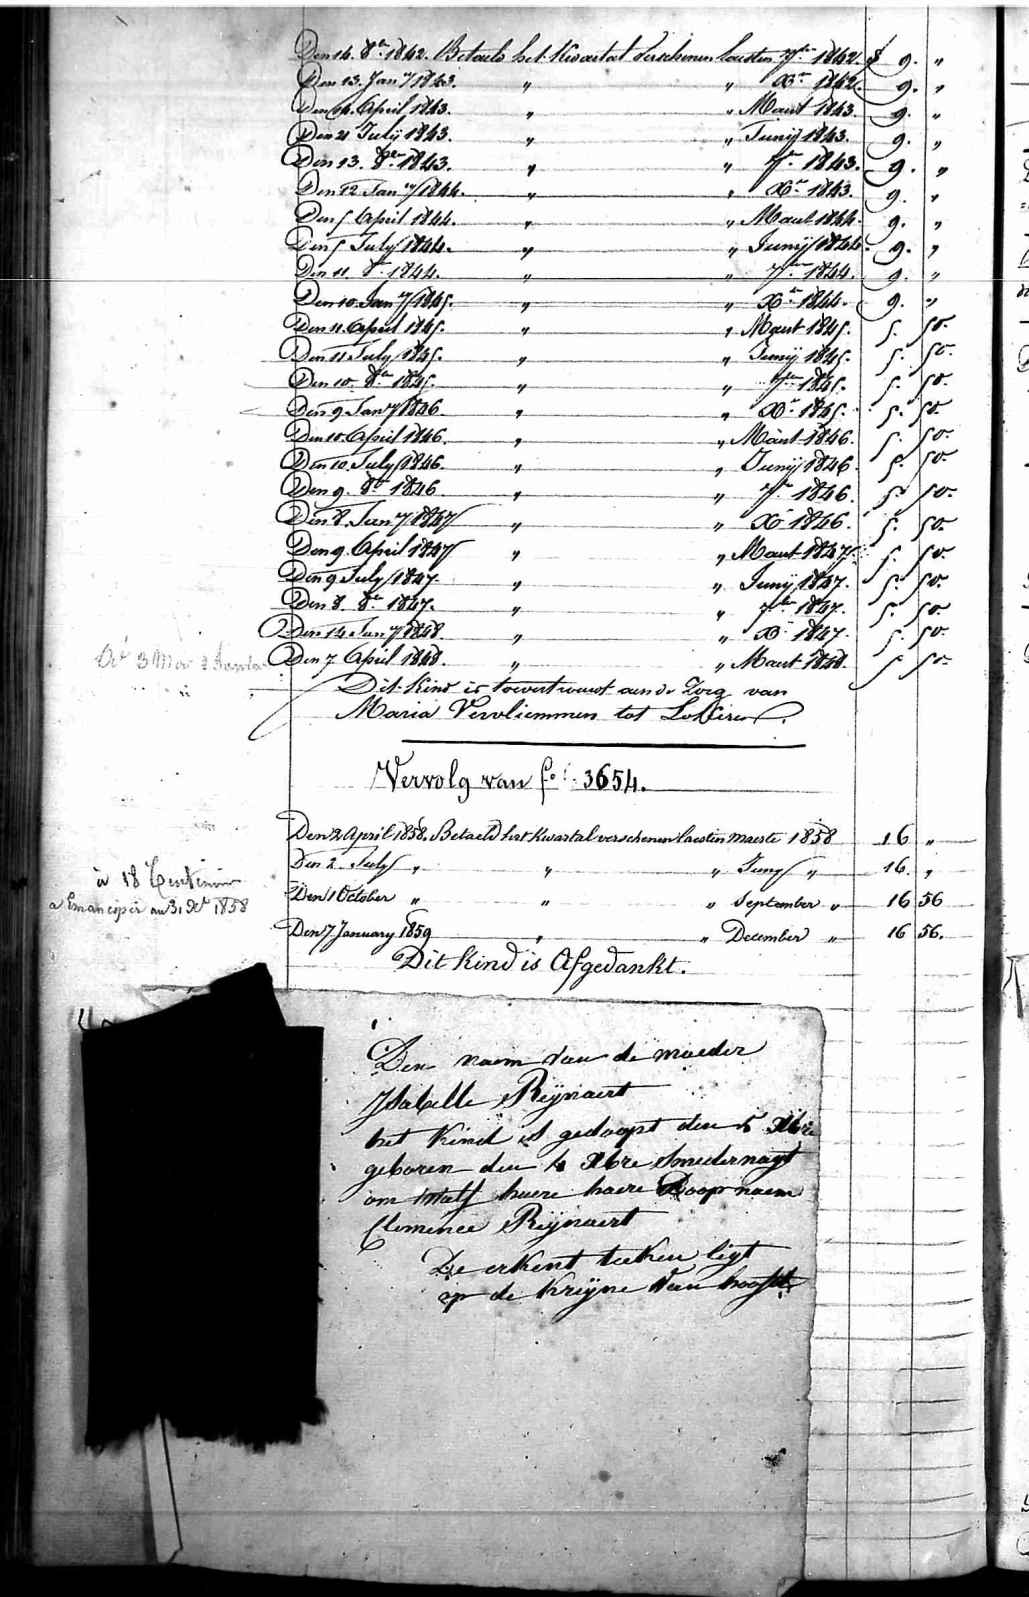 Den 14. 8re 1842. Betaeld het Kwartal Verschenen laesten 7re 1842. 9. "
Den 13. Jany 1843. " " Xre 1842. 9. "
Den 14. April 1843. " " Maart 1843. 9. "
Den 21 July 1843. " " Junij 1843. 9. "
Den 13. 8re 1843. " " 7re 1843. 9. "
Den 12 Jany 1844. " " Xre 1843. 9. "
Den 5 April 1844. " " Maart 1844. 9. "
Den 5 July 1844. " " Junij 1844. 9. "
Den 11. 8re 1844. " " 7re 1844. 9. "
Den 10. Jany 1845. " " Xre 1844. 9. "
Den 11. April 1845. " " Maart 1845. 5. 50.
Den 11 July 1845. " " Junij 1845. 5. 50.
Den 10. 8re 1845. " " 7re 1845. 5. 50.
Den 9 Jany 1846 " " Xre 1845. 5. 50.
Den 10. April 1846. " " Maart 1846. 5. 50.
Den 10. July 1846. " " Junij 1846. 5. 50.
Den 9. 8re 1846 " " 7re 1846. 5. 50.
Den 8. Jany 1847 " " Xre 1846. 5. 50.
Den 9. April 1847 " " Maart 1847. 5. 50.
Den 9 July 1847. " " Junij 1847. 5. 50.
Den 8. 8re 1847. " " 7re 1847. 5. 50.
Den 14 Jany 1848. " " Xre 1847. 5. 50.
Den 7 April 1848. " " Maart 1848. 5 50.
Dit Kind is toevertrouwt aan de Zorg van
Maria Vervliemmen tot
Vervolg van fo. 3654.
Den 2 April 1858. Betaeld het Kwartal verschenen laesten Maerte 1858 16 "
Den 2. July " " " Juny " 16. "
à 18
Den 1 October " " " September " 16 56
a Emanciper au 31 Xre 1858
Den 7 January 1859 " " December " 16 56.
Dit Kind is Afgedankt.
Den naem van de moeder
Ysabelle Reijnaert
het Kind is gedoopt den 5 Xbre
geboren den 4 Xbre Smedernagt
om half huere haere Doop naem
Clemence Reijnaert
De erkent teeken ligt
op de Kreijne Van hooft